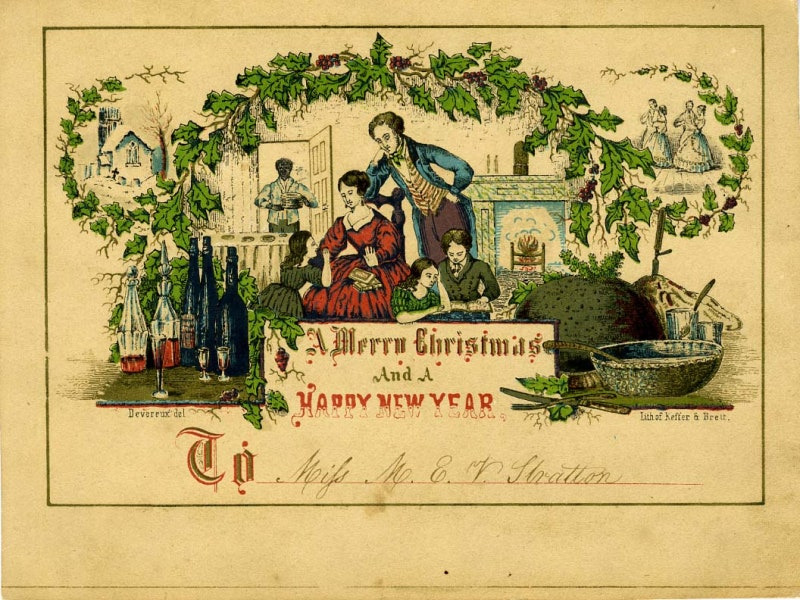 A Merry Christmas
And A
HAPPY NEW YEAR.
Devereux del
Lith of Keffer & Brett.
To Miſs M. E. V. Stratton